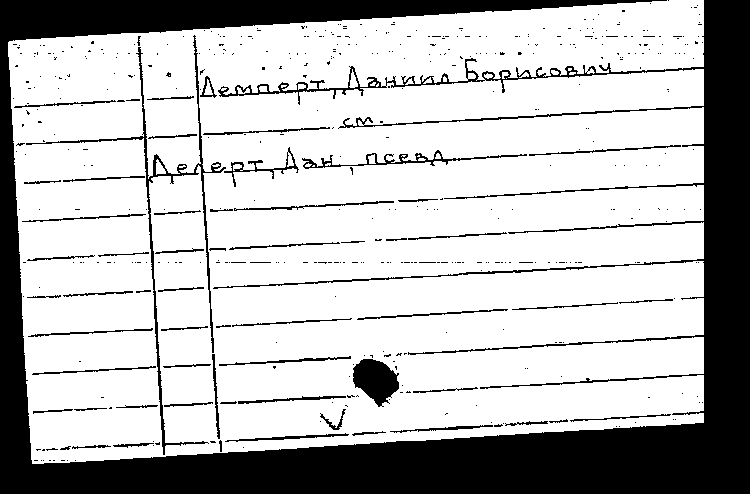 Лемперт, Даниил Борисович
см.
Делерт, Дан, псевд.